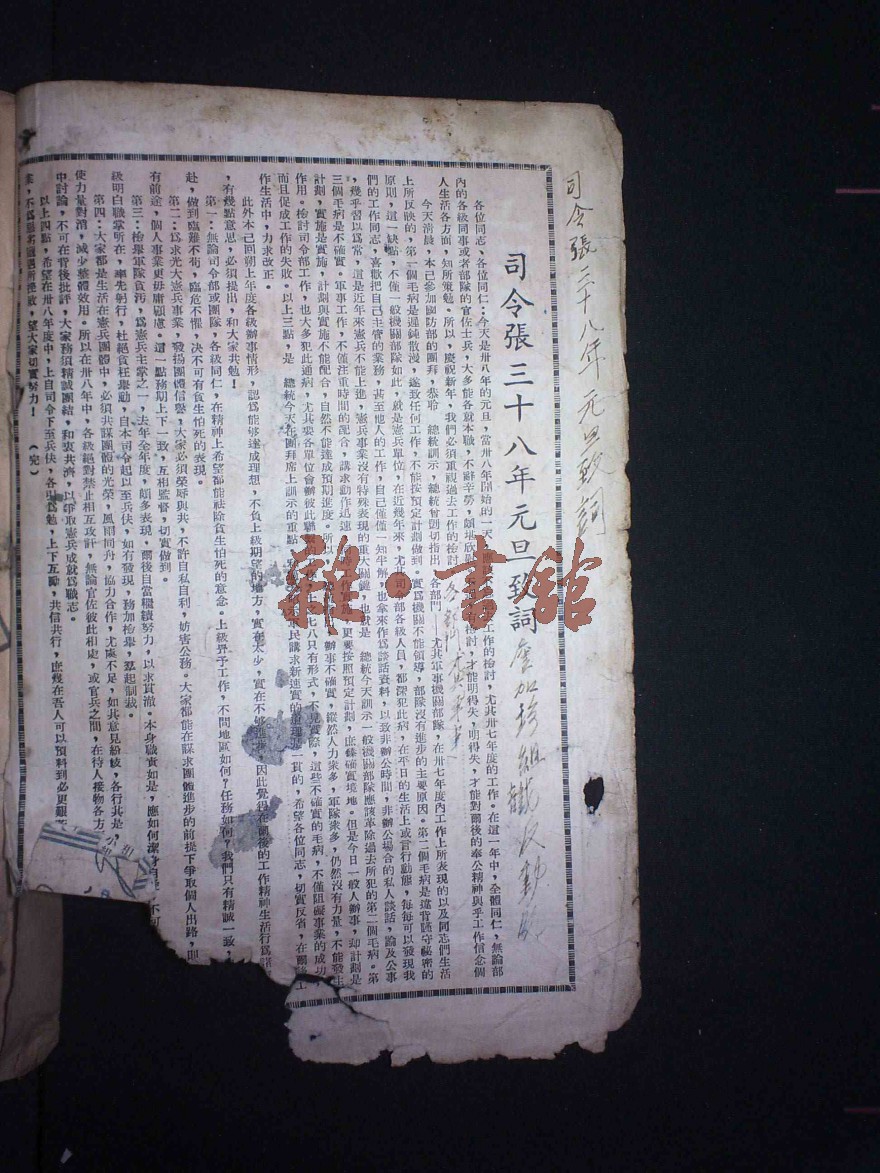 司令張三十八年元旦致詞
司令張三十八年元旦致詞
各位同志、各位同仁：今天是卅八年的元旦，當卅八年開始的一天
工作的檢討，尤其卅七年度的工作。在這一年中，全體同仁，無論部
內的各級同事或者部隊的官佐士兵，大多能各就本職，不辭辛勞，
檢討，才能明得失，明得失，才能對爾後的奉公精神與乎工作信念個
人生活各方面，知所策勉。所以，慶祝新年，我們必須重視過去工作的檢討
今天清晨，本己參加國防部的團拜，恭聆　總統訓示，總統曾剴切指出
各部門——尤其軍事機關部隊，在卅七年度內工作上所表現的以及同志們生活
上所反映的，第一個毛病是遲鈍散漫，遂致任何工作，不能按預定計劃做到。實為機關不能領導，部隊沒有進步的主要原因。第二個毛病是違背謹守秘密的
原則，這一缺點，不僅一般機關部隊如此，就是憲兵單位，在近幾年來，尤其司令部各級人員，都深犯此病，在平日的生活上或言行動態，每每可以發現我
們的工作同志，喜歡把自己主管的業務，甚至他人的工作，自己僅僅一知半解，也拿來作為談話資料，以致非辦公時間，非辦公場合的私人談話，論及公事
，幾乎習以為常，這是近年來憲兵不能上進，憲兵事業沒有特殊表現的重大關鍵，也就是　總統今天訓示一般機關部隊應該革除過去所犯的第二個毛病。第
三個毛病是不確實。軍事工作，不僅注重時間的配合，講求動作迅速
更要按照預定計劃，庶臻確實境地。但是今日一般人辦事，却計劃是
計劃，實施是實施，計劃與實施不能配合，自然不能達成預期進度。所以
辦事不確實，縱然人力衆多，軍隊衆多，仍然沒有力量，不能發生
作用。檢討司令部工作，也大多犯此通病，尤其要各單位會辦彼此聯繫
七八只有形式，不見實際，這些不確實的毛病，不僅阻礙事業的成功
而且促成工作的失敗。以上三點，是　總統今天在團拜席上訓示的重點
民講求新速實的道理是一貫的，希望各位同志，切實反省，在爾後工
作生活中，力求改正。
此外本己回朔上年度各級辦事情形，認為能够達成理想，不負上級期望的地方，實在太少，實在不够進步，因此覺得在爾後的工作精神生活行為
，有幾點意思，必須提出，和大家共勉！
第一：無論司令部或團隊，各級同仁，在精神上希望都能祛除貪生怕死的意念。上級畀予工作，不問地區如何？任務如何？我們只有精誠一致，
赴，做到臨難不茍，臨危不懼，決不可有貪生怕死的表現。
第二：為求光大憲兵事業，發揚團體信譽，大家必須榮辱與共，不許自私自利，妨害公務。大家都能在謀求團體進步的前提下爭取個人出路，則
有前途，個人事業更毋庸顧慮。這一點務期上下一致，互相監督，切實做到。
第三：檢舉軍隊貪汚，為憲兵主掌之一，去年全年度，頗多表現，爾後自當繼續努力，以求貫澈。本身職責如是，應如何潔身自
級明白職掌所在，率先躬行，杜絕貪枉舉動，自本司令起以至兵伕，如有發現，務加檢舉，羣起制裁。
第四：大家都是生活在憲兵團體中，必須共謀團體的光榮，風雨同舟，協力合作，尤處不足，如其意見紛岐，各行其是
使力量對消，減少整體效用。所以在卅八年中，各級絕對禁止相互攻訐，無論官佐彼此相處，或官兵之間，在待人接物各方
中討論，不可在背後批評，大家務須精誠團結，和衷共濟，以爭取憲兵成就為職志。
以上四點，希望在卅八年度中，上自司令下至兵伕，各自為勉，上下互勵，共信共行，庶幾在吾人可以預料到必更艱
業，不為惡劣
望大家切實努力！　（完）
雜·書館